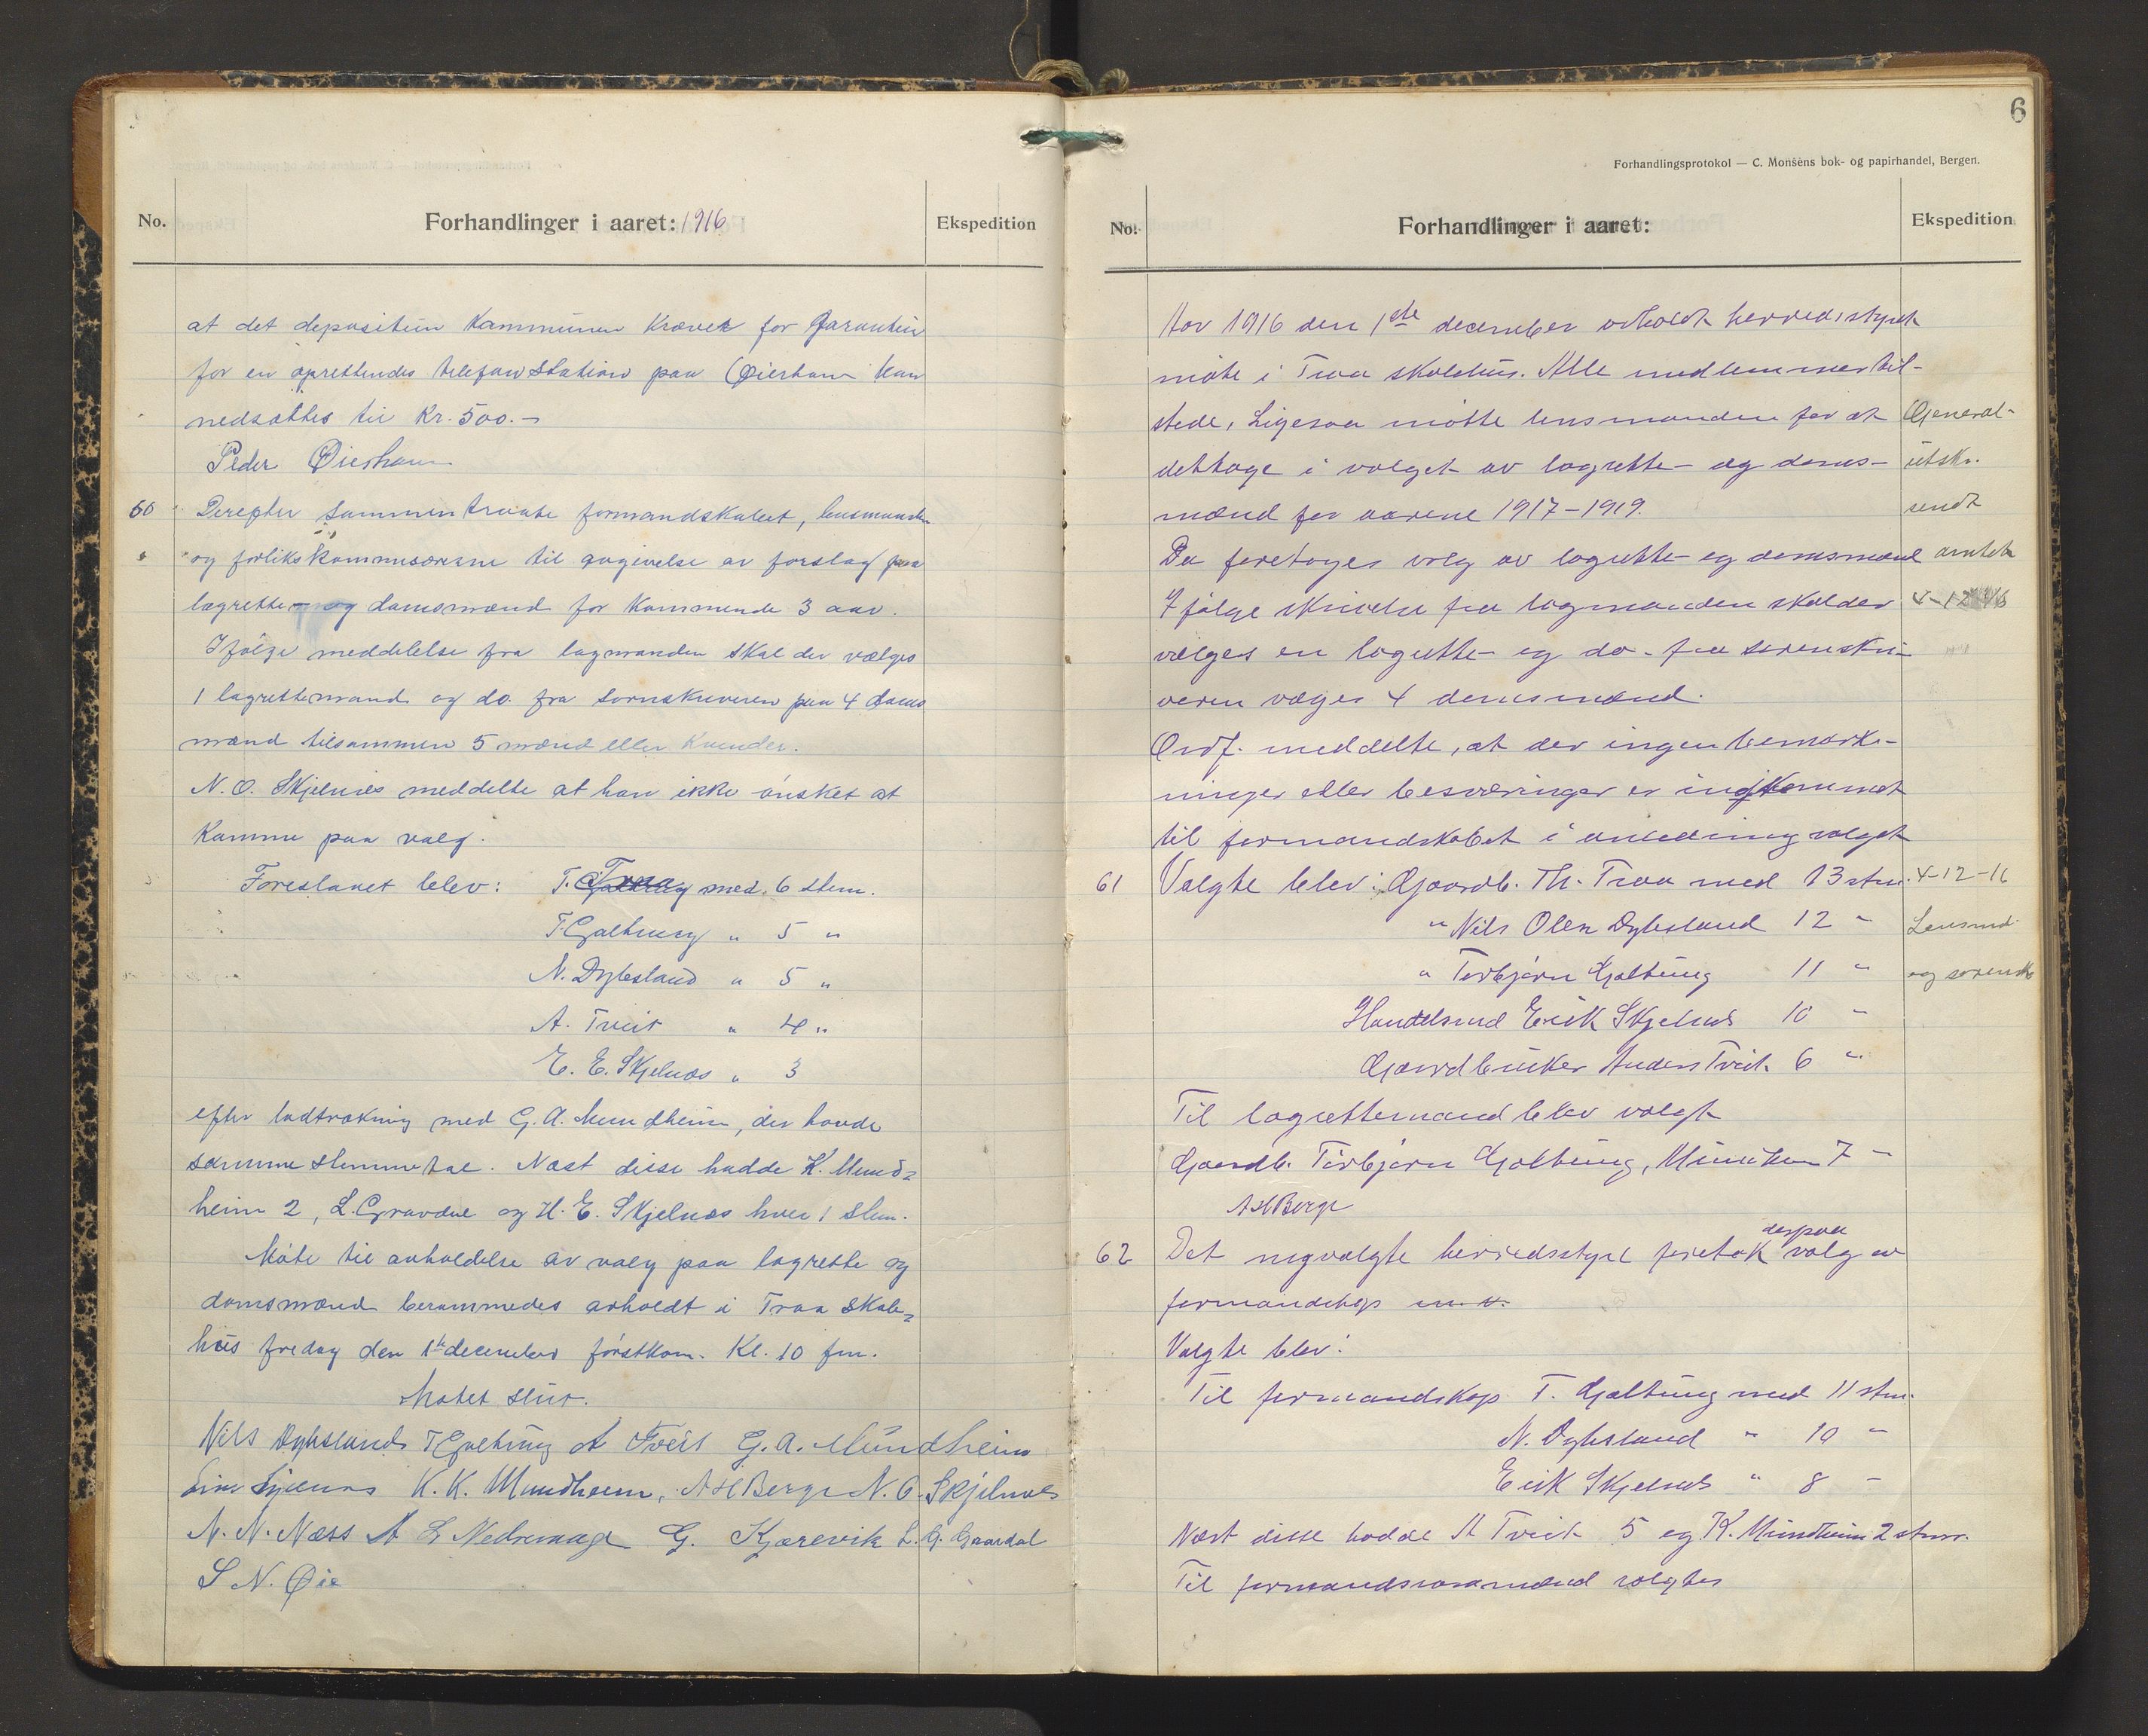 No.
Forhandlinger i aaret: 1916
Ekspedition
at det depositum kommunen kræver for garantien
for en oprettendes telefonstation paa Øierhavn kan
nedsættes til Kr. 500.-
Peder Øierhavn
60 Derefter sammentraate formandskabet, lensmanden
og forlikskommisærerne til avgivelse av forslag paa
lagrette- og domsmænd for kommende 3 aar.
Ifølge meddelelse fra lagmanden skal der vælges
1 lagrettemand og do. fra sornskriveren paa 4 doms
mænd tilsammen 5 mænd eller kvinder.
N. O. Skjelnes meddelte at han ikke ønsket at
komme paa valg.
Foreslaaet blev: T. Traa med 6 stem.
T. Galtung " 5 "
N. Dybsland " 5 "
A. Tveit " 4 "
E. E. Skjelnæs " 3
efter lodtrækning med G. A. Mundheim, der havde
samme stemmetal. Næst disse hadde K. Mund=
heim 2, L. Gravdal og H. E. Skjelnæs hver 1 stem.
Møte til avholdelse av valg paa lagrette og
domsmænd berammedes avholdt i Traa skole=
hus fredag den 1ste december førstkom. Kl. 10 fm.
Møtet slut.
Nils Dybsland T Galtung A Tveit G. A. Mundheim
K. K. Mundheim, A H Berge N. O. Skjelnes
N. N. Næss A L Nedrevaage G. Kjærevik L. G. Gaardal
S N. Øie
6
Forhandlingsprotokol — C. Monsens bok- og papirhandel, Bergen.
No.
Forhandlinger i aaret:
Ekspedition
Aar 1916 den 1ste december avholdt herredsstyret
møte i Traa skolehus. Alle medlemmer til-
stede, Ligesaa møtte lensmanden for at
deltage i valget av lagrette- og doms-
mænd for aarene 1917-1919.
General-
utskr.
sendt
amtet
4-12-16
Da foretoges valg av lagrette- og domsmænd
Ifølge skrivelse fra lagmanden skal der
vælges en lagrette- og do. fra sorenskri-
veren væges 4 domsmænd.
Ordf. meddelte, at der ingen bemærk-
ninger eller besværinger er indkommet
til formandskabet i anledning valget
61 Valgte blev: Gaardb. Th. Traa med 13 stm. 4-12-16
" Nils Olsn Dybsland 12 " Lensmd.
" Torbjørn Galtung 11 " og sorensk
Handelsmd Erik Skjelnæs 10 "
Gaardbruker Anders Tveit 6 "
Til lagrettemand blev valgt
Gaardb. Torbjørn Galtung, 7 "
A H Berge
62 Det nyvalgte herredsstyre foretok derpaa valg av
formandskap m. v.
Valgte blev:
Til formandskap T. Galtung med 11 stm.
N. Dybsland " 10 "
Erik Skjelnæs " 8 "
Næst disse hadde A Tveit 5 og K. Mundheim 2 stem.
Til formandsvaramænd valgtes